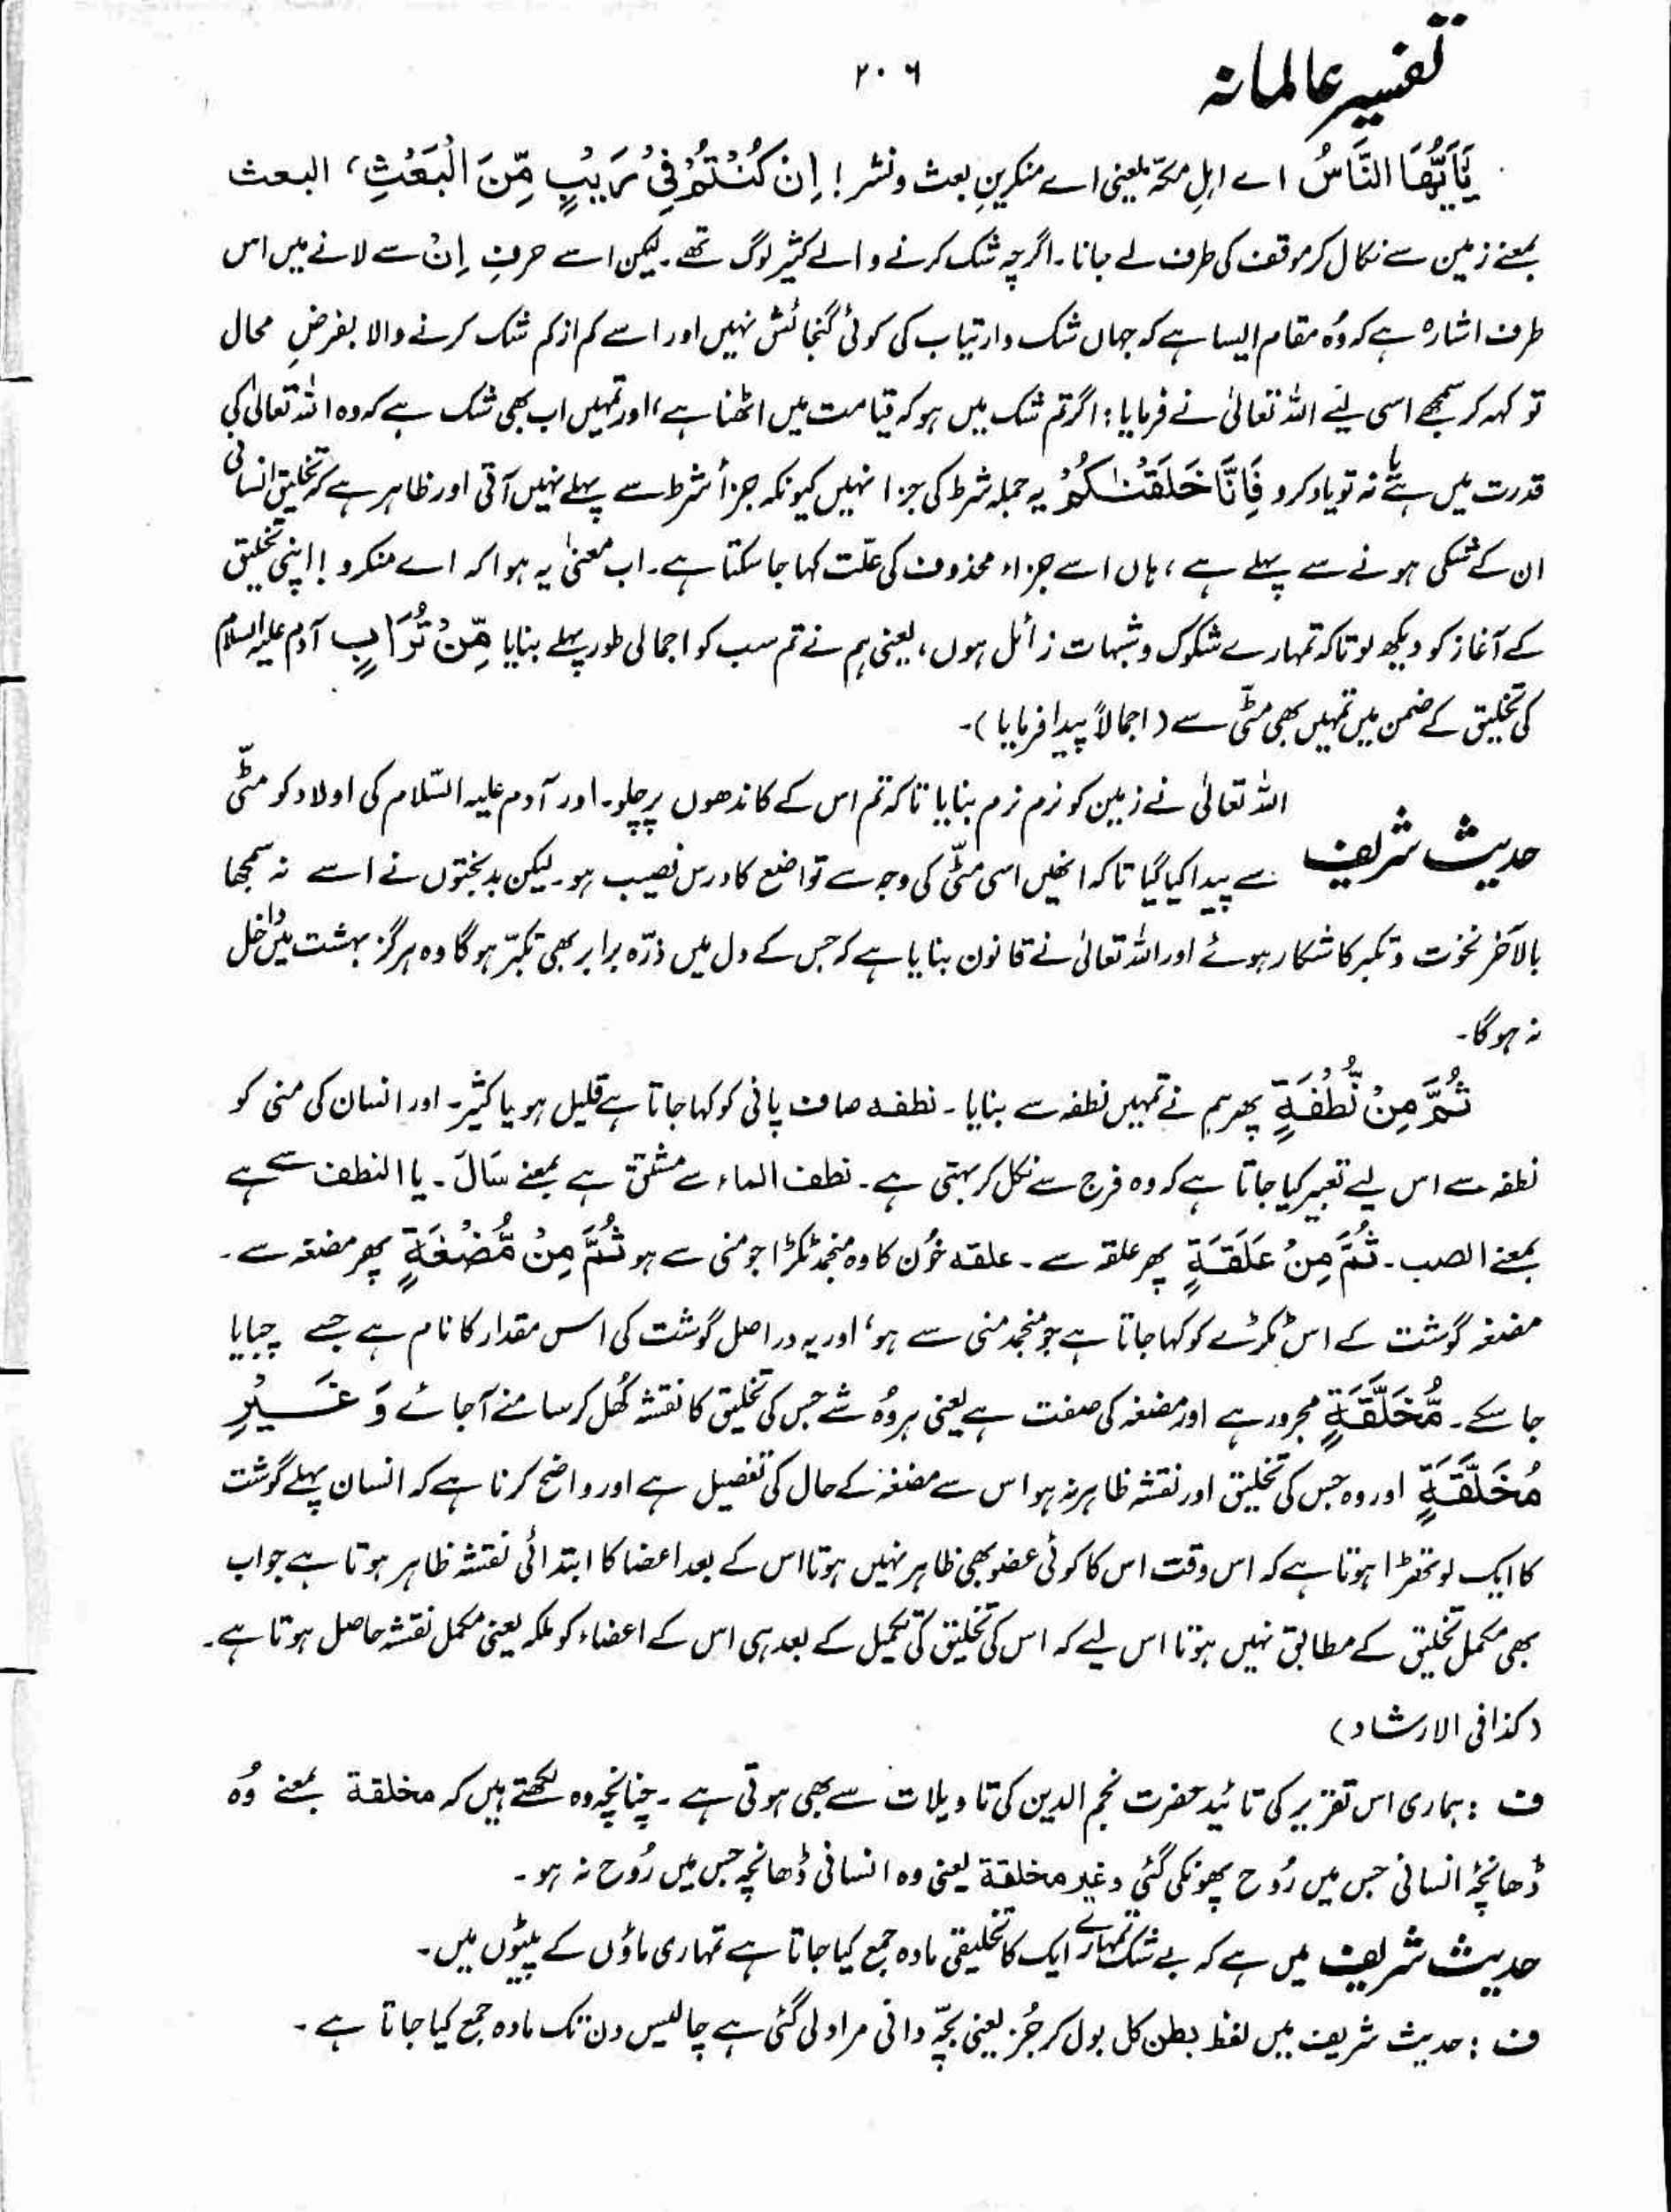 تفسیر عالمانہ
۲۰۶
يٰٓاَيُّهَا النَّاسُ اے اہلِ مکّہ یعنی اے منکرینِ بعث و نشر! اِنْ كُنْتُمْ فِيْ رَيْبٍ مِّنَ الْبَعْثِ، البعث
بمعنے زمین سے نکال کر موقف کی طرف لے جانا۔ اگرچہ شک کرنے والے کثیر لوگ تھے۔ لیکن اسے حرفِ اِنْ سے لانے میں اس
طرف اشارہ ہے کہ وُہ مقام ایسا ہے کہ جہاں شک و ارتیاب کی کوئی گنجائش نہیں اور اسے کم از کم شک کرنے والا بفرضِ محال
تو کہہ کر سمجھے اسی لیے اللہ تعالیٰ نے فرمایا: اگر تم شک میں ہو کہ قیامت میں اٹھنا ہے، اور تمہیں اب بھی شک ہے کہ وہ اللہ تعالیٰ کی
قدرت میں ہے یا نہ تو یاد کرو فَاِنَّا خَلَقْنٰكُمْ یہ جملہ شرط کی جزا نہیں کیونکہ جزأ شرط سے پہلے نہیں آتی اور ظاہر ہے کہ تخلیق انسانی
ان کے شکی ہونے سے پہلے ہے، ہاں اسے جزاء محذوف کی علّت کہا جا سکتا ہے۔ اب معنیٰ یہ ہوا کہ اے منکرو! اپنی تخلیق
کے آغاز کو دیکھ لو تاکہ تمہارے شکوک و شبہات زائل ہوں، یعنی ہم نے تم سب کو اجمالی طور پہلے بنایا مِّنْ تُرَابٍ آدم علیہ السلام
کی تخلیق کے ضمن میں تمہیں بھی مٹّی سے (اجمالاً پیدا فرمایا)۔
حدیث شریف اللہ تعالیٰ نے زمین کو نرم نرم بنایا تاکہ تم اس کے کاندھوں پر چلو۔ اور آدم علیہ السّلام کی اولاد کو مٹّی
سے پیدا کیا گیا تاکہ انھیں اسی مٹّی کی وجہ سے تواضع کا درس نصیب ہو۔ لیکن بدبختوں نے اسے نہ سمجھا
بالآخر نخوت و تکبر کا شکار ہوئے اور اللہ تعالیٰ نے قانون بنایا ہے کہ جس کے دل میں ذرّہ برابر بھی تکبّر ہوگا وہ ہرگز بہشت میں داخل
نہ ہوگا۔
ثُمَّ مِنْ نُّطْفَةٍ پھر ہم نے تمہیں نطفہ سے بنایا۔ نطفہ صاف پانی کو کہا جاتا ہے قلیل ہو یا کثیر۔ اور انسان کی منی کو
نطفہ سے اس لیے تعبیر کیا جاتا ہے کہ وہ فرج سے نکل کر بہتی ہے۔ نطف الماء سے مشتق ہے بمعنے سَالَ۔ یا النطف سے ہے
بمعنے الصب۔ ثُمَّ مِنْ عَلَقَةٍ پھر علقہ سے۔ علقہ خُون کا وہ منجمد ٹکڑا جو منی سے ہو ثُمَّ مِنْ مُّضْغَةٍ پھر مضغہ سے۔
مضغہ گوشت کے اس ٹکڑے کو کہا جاتا ہے جو منجمد منی سے ہو، اور یہ در اصل گوشت کی اس مقدار کا نام ہے جسے چبایا
جا سکے۔ مُّخَلَّقَةٍ مجرور ہے اور مضغہ کی صفت ہے یعنی ہر وُہ شے جس کی تخلیق کا نقشہ کُھل کر سامنے آجائے وَ غَيْرِ
مُخَلَّقَةٍ اور وہ جس کی تخلیق اور نقشہ ظاہر نہ ہو اس سے مضغہ کے حال کی تفصیل ہے اور واضح کرنا ہے کہ انسان پہلے گوشت
کا ایک لوتھڑا ہوتا ہے کہ اس وقت اس کا کوئی عضو بھی ظاہر نہیں ہوتا اس کے بعد اعضا کا ابتدائی نقشہ ظاہر ہوتا ہے جو اب
بھی مکمل تخلیق کے مطابق نہیں ہوتا اس لیے کہ اس کی تخلیق کی تکمیل کے بعد ہی اس کے اعضاء کو ملکہ یعنی مکمل نقشہ حاصل ہوتا ہے۔
(کذا فی الارشاد)
ف : ہماری اس تقریر کی تائید حضرت نجم الدین کی تاویلات سے بھی ہوتی ہے۔ چنانچہ وہ لکھتے ہیں کہ مخلقة بمعنے وُہ
ڈھانچۂ انسانی جس میں رُوح پھونکی گئی وغیر مخلقة یعنی وہ انسانی ڈھانچہ جس میں رُوح نہ ہو۔
حدیث شریف میں ہے کہ بے شک تمہارے ایک کا تخلیقی مادہ جمع کیا جاتا ہے تمہاری ماؤں کے پیٹوں میں۔
ف : حدیث شریف میں لفظ بطن کل بول کر جُز یعنی بچّہ دانی مراد لی گئی ہے چالیس دن تک مادہ جمع کیا جاتا ہے۔